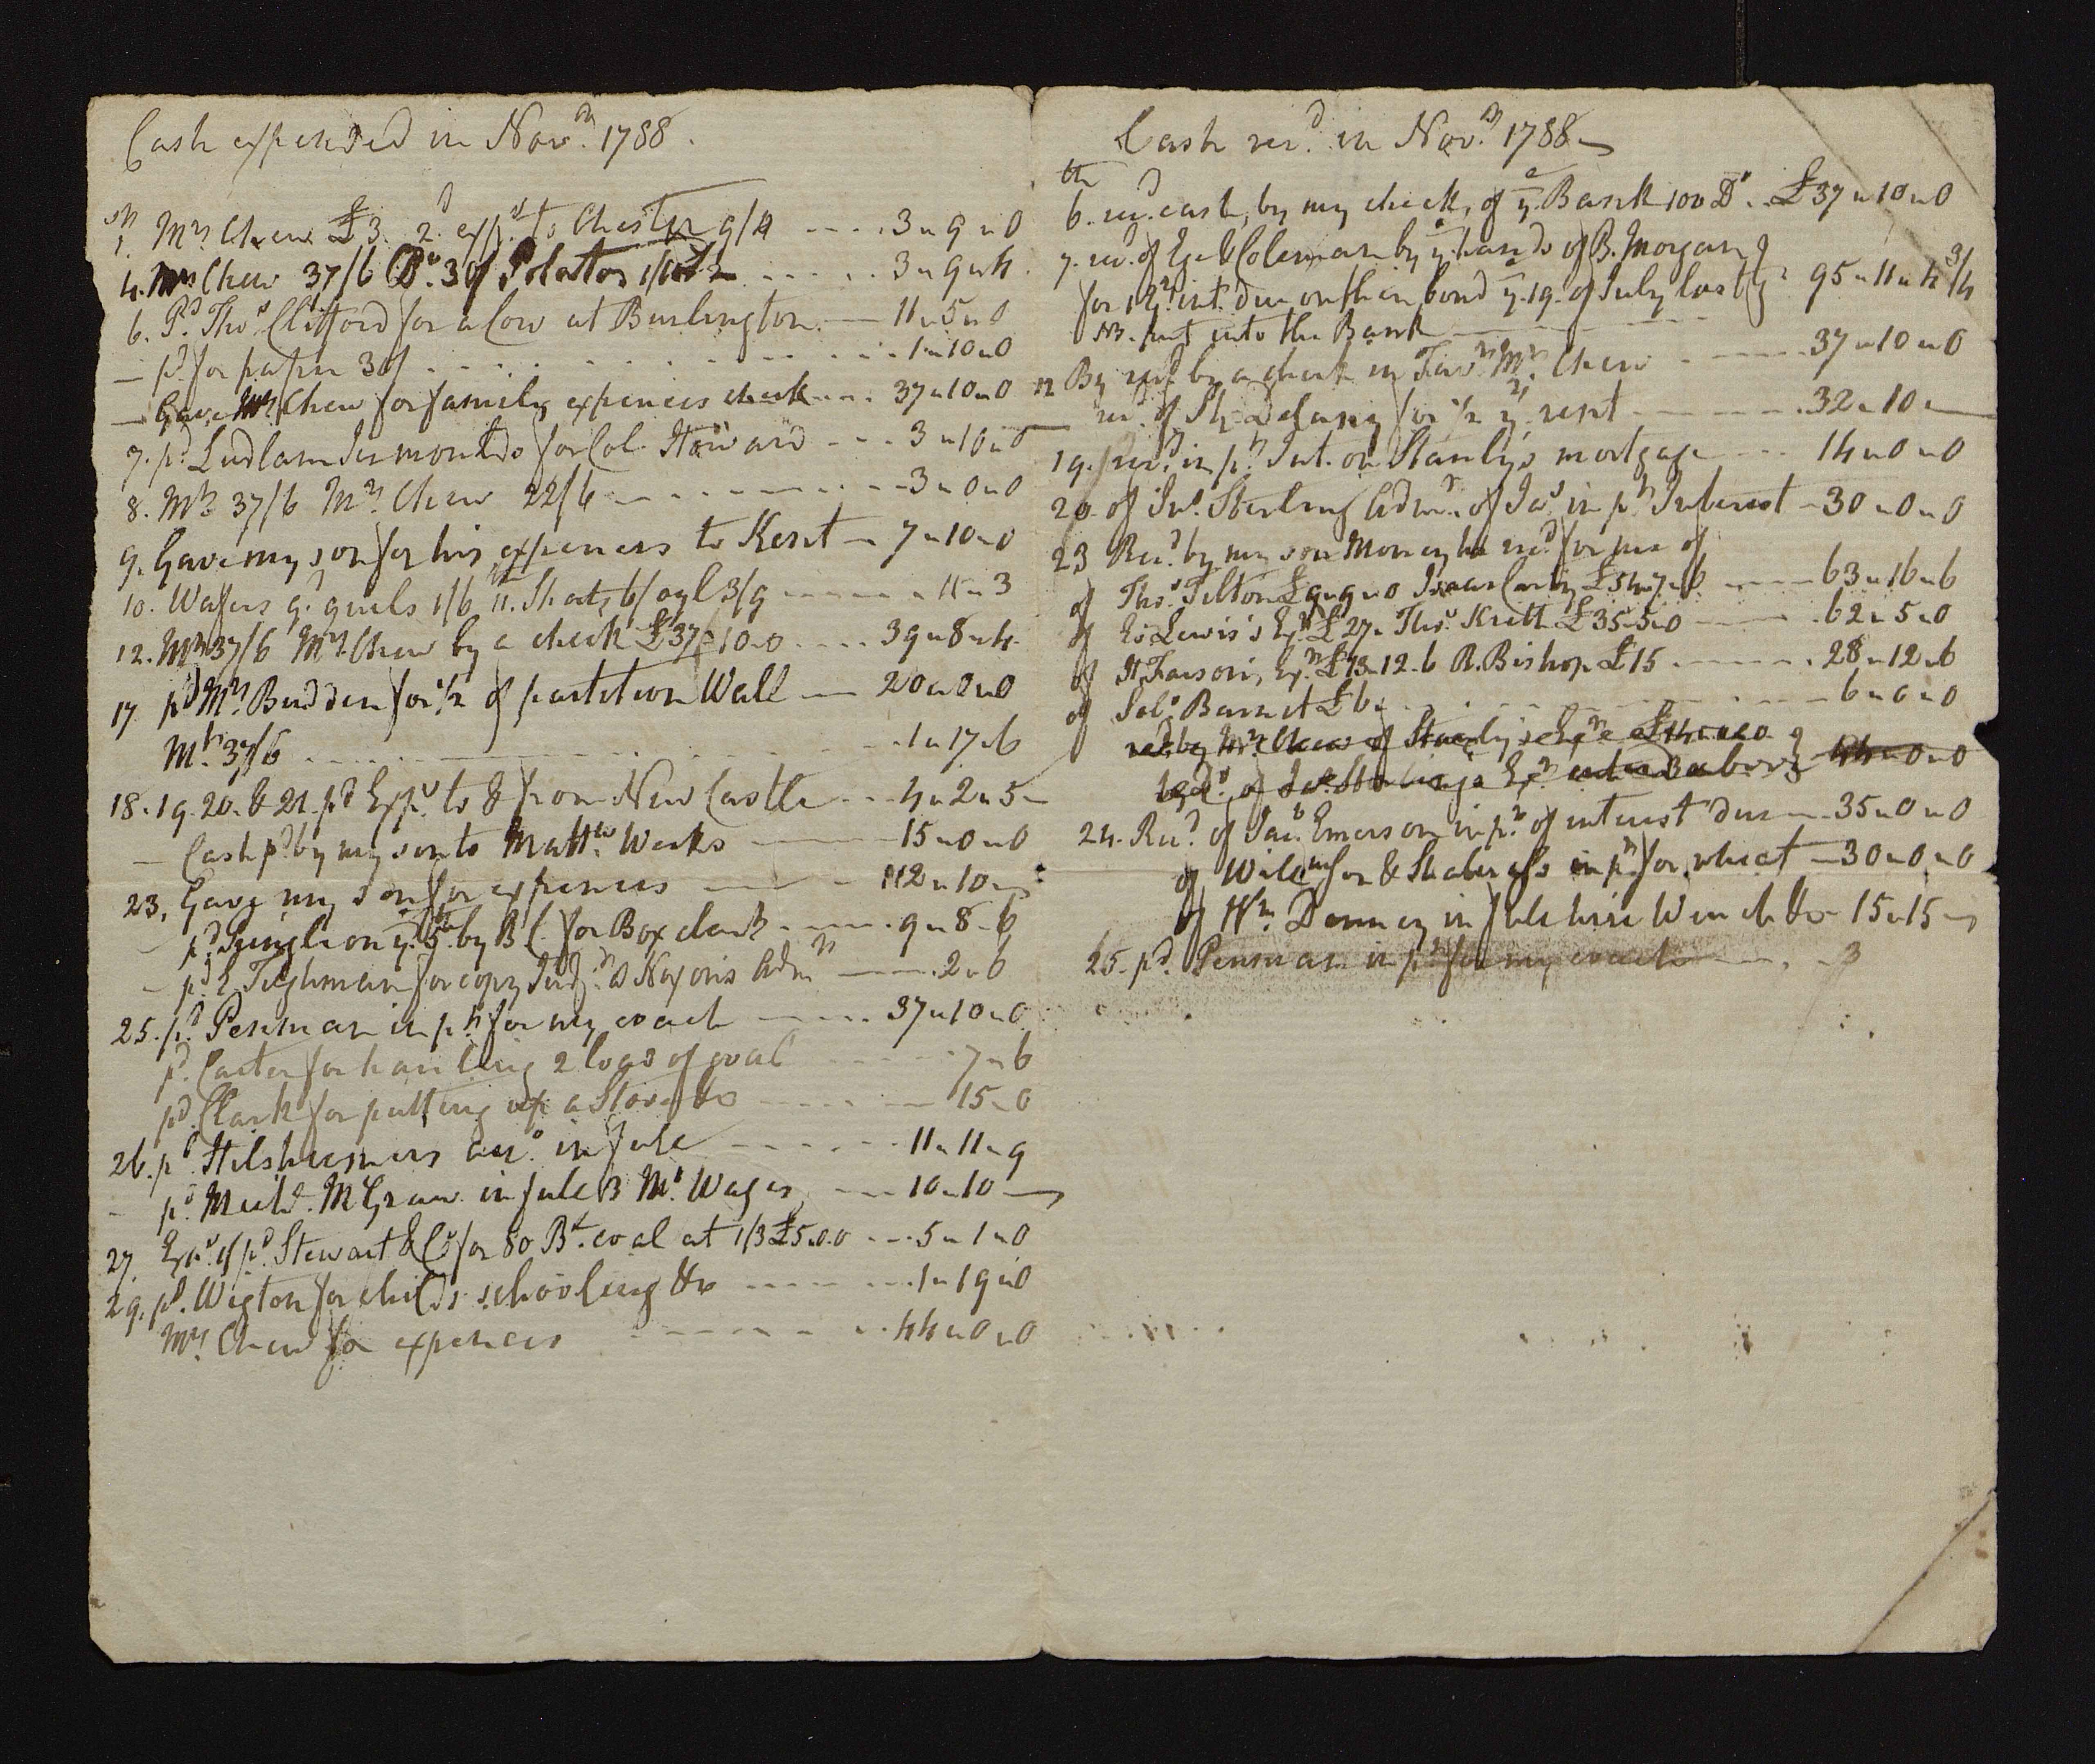 Cash expended in Novr. 1788.
1. Mrs Chew £3. 2d. exps. to Chester 9/ 3 " 9 " 0
4. Mrs Chew 37/6 Do. 30/ Potatos 3 " 9 " 4
6. Pd. Thos. Clifford for a Cow at Burlington 11 " 5 " 0
— pd. for paper 30/ 1 " 10 " 0
— Gave Mrs Chew for family expences check 37 " 10 " 0
7. pd. Ludlam for Col. Howard 3 " 10 " 0
8. Mrs 37/6 Mrs. Chew 22/6 3 " 0 " 0
9. Gave my son for his expences to Kent 7 " 10 " 0
10. Wafers qr. quils 1/6 11. 6/ oyl 3/9 11 " 3
12. Mrs 37/6 Mrs. Chew by a check £37-10-0 39 " 8 " 4
17 pd. Mrs. Budden for 1/2 of partition Wall 20 " 0 " 0
Mrs. 37/6 1 " 17 " 6
18. 19. 20. & 21. pd Exps. to & from New Castle 4 " 2 " 5
— Cash pd. by my son to Mattw. Weeks 15 " 0 " 0
23, Gave my son for expences 112 " 10 "
— pd. on ye. 5th. by B C. for Box 9 " 8 - 6
— pd. E Tilghman for copy Judgt. Noxon's Admr 2 " 6
25. pd. Penman in pt. for my coach 37 " 10 " 0
pd. Carter for hauling 2 load of coal 7 " 6
pd. Clark for putting up a Stove &c 15 " 0
26. pd. Hilsheimers acct. in full 11 " 11 " 9
— pd. Michl. McGraw in full 3 Mo. Wages 10 " 10 —
27. Exps. of pd. Stewart & Co for 80 Bs. coal at 1/3 £5.0.0 5 " 1 " 0
29. pd. Wigton for childs schooling &c 1 " 19 " 0
Mrs. Chew for expences 44 " 0 " 0
Cash recd. in Novr. 1788
6th. recd. cash, by my check, of ye. Bank 100 Ds. £37 " 10 " 0
7. recd. of & Coleman by ye. hands of B. Morgan
for 12 int. due on their bond ye. 19. of July last 95 " 11 " 4 3/4
NB. put into the Bank
12 By by a check in Favr. Mrs. Chew 37 " 10 " 0
recd. of Delany for 1/2 yrs. rent 32 " 10 —
19. recd. in pt. Int. on Stanly's mortgage 14 " 0 " 0
20 of Jno. Sterling Admr. of Jas. in pt. Interest 30 " 0 " 0
23 Recd. by my son Money he recd. for me of
of Thos. Tilton £9 " 9 " 0 Isaac £54 " 7 " 6 63 " 16 " 6
of Lewis's Exr. £27. Thos. Keith £35-5-0 62 " 5 " 0
of H. Farson's Exr. £13-12-6 R. Bishop £15 28 " 12 " 6
of Sols. Barnet £6 6 " 0 " 0
recd by Mrs Chew of Stanly's Exr £14 " 0 " 0
recd. of Jas. Sterling's Exr. entered above 44 " 0 " 0
24. Recd. of Jas. Emerson in pt. of interest due 35 " 0 " 0
of & in pt. for wheat 30 " 0 " 0
of Wm. Denney in full hire Wench &c 15 " 15 —
25. pd. Penman in pt. for my coach